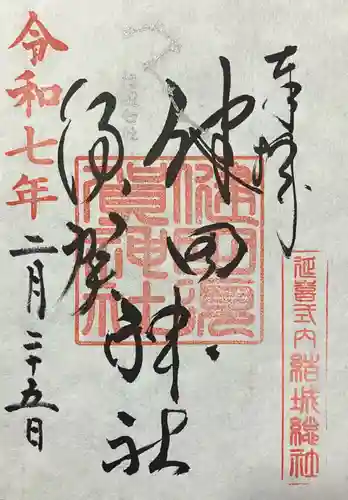 奉拝
延喜式内 結城総社
健田
須賀
神社
令和七年
二月二十五日